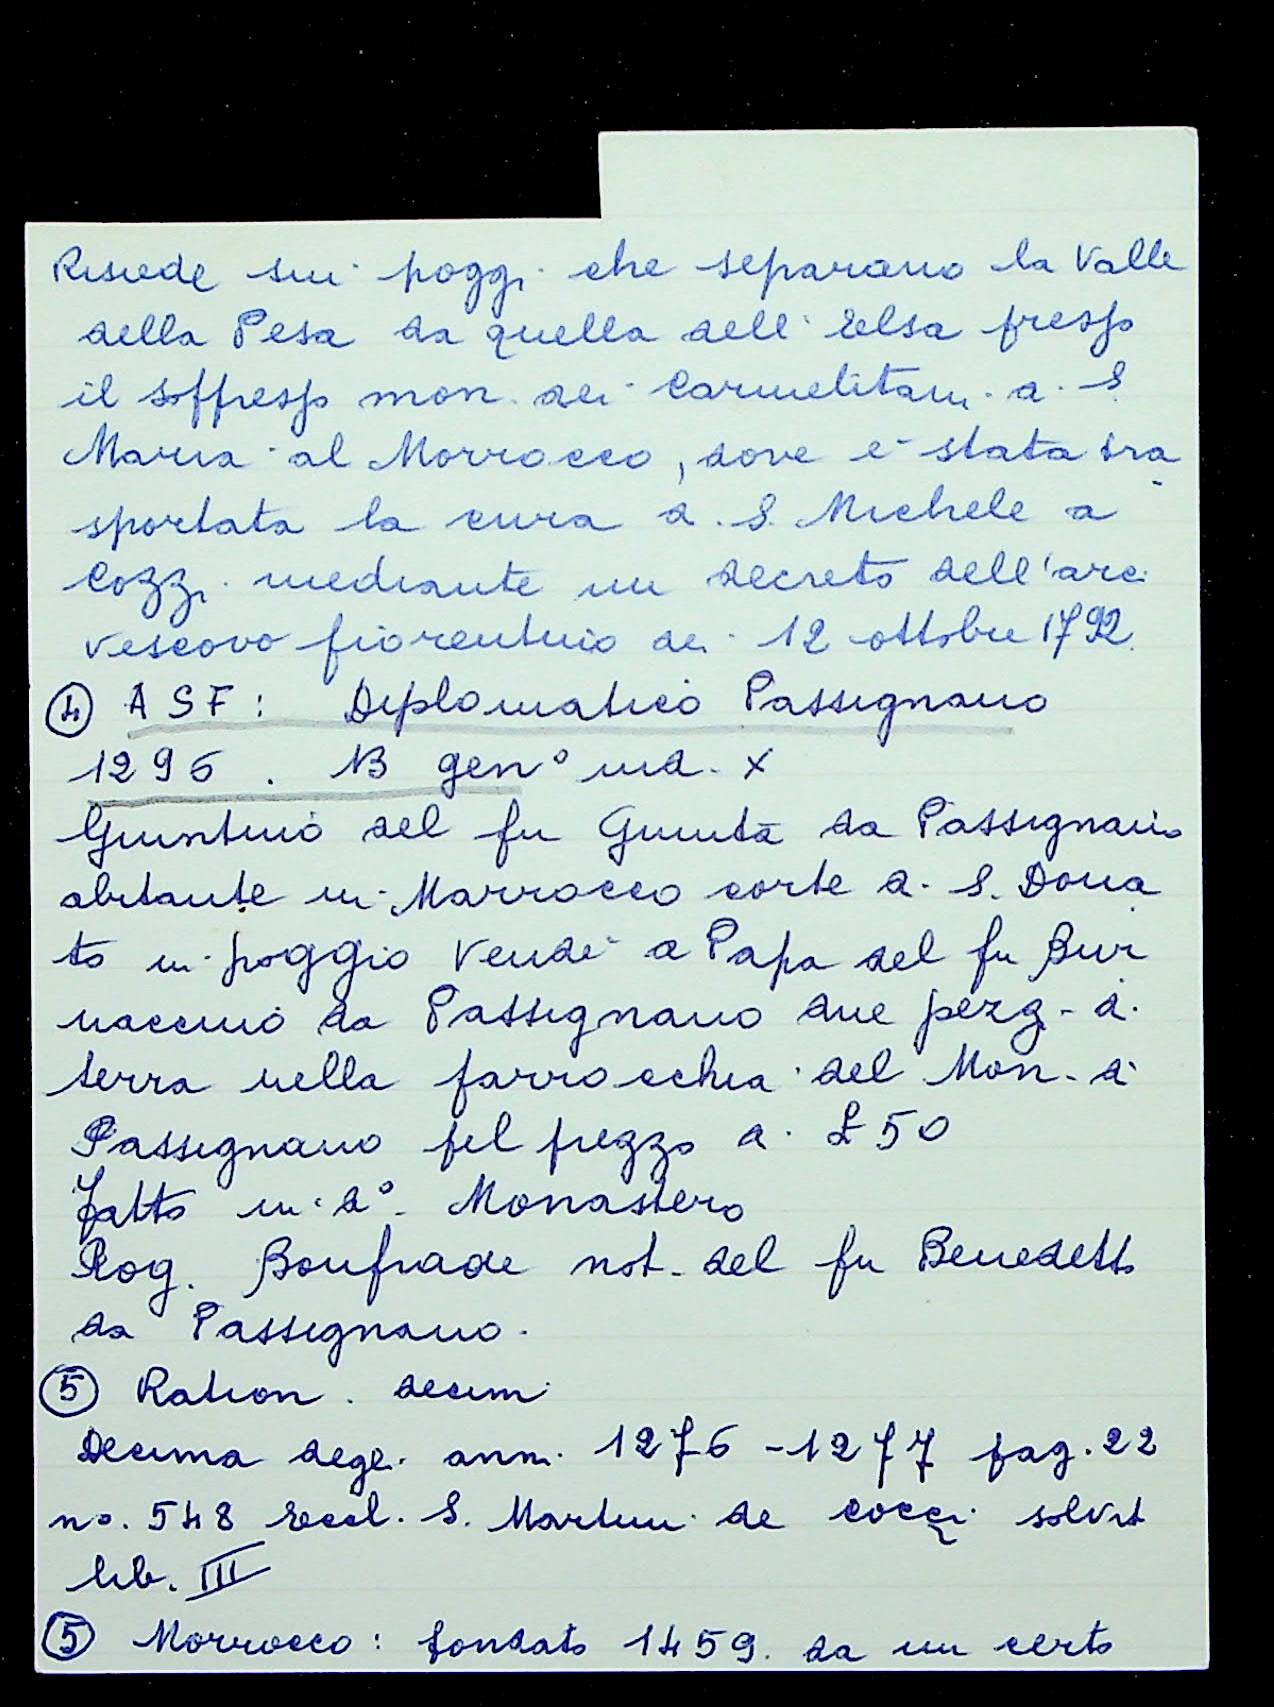 Risiede sui poggi che separano la Valle
della Pesa da quella dell'Elsa presso
il soppresso mon. dei Carmelitani a S.
Maria al Morrocco, dove è stata tra
sportata la cura di S. Michele a
Cozzi mediante un decreto dell'arci
vescovo fiorentino dei 12 ottobre 1792.
④ ASF: Diplomatico Passignano
1296. 13 genº ind. X
Giuntino del fu Giunta da Passignano
abitante in Marrocco corte di S. Dona
to in poggio vende a Papa del fu Bur
naccino da Passignano due pezzi di
terra nella parrocchia del Mon. di
Passignano pel prezzo di £ 50
fatto in dº. Monastero
Rog. Bonfrade not. del fu Benedetto
da Passignano.
⑤ Ration. decim.
Decima degli anni 1276-1277 pag. 22
no. 548 Eccl. S. Martini de Cocçi solvit
lib. III
⑤ Morrocco: fondato 1459. da un certo